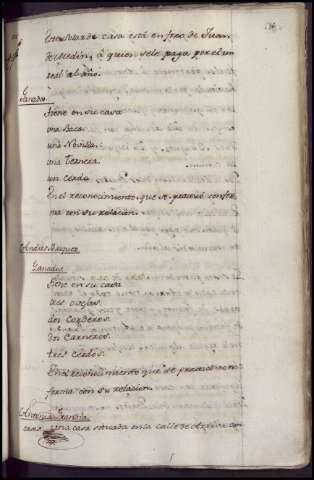 Este solar de casa está en frec de Juan
de Medin, a quien se le paga por el un
real al año.
Ganados
Tiene en su casa
una Baca
una Novilla
una Ternera
un cerdo
En el reconocimiento que se practicó confor
ma con su relacion.
Andres Basquez
Ganados
Tiene en su casa
tres ovejas
dos Corderos
dos Carneros
tres cerdos.
En el reconocimiento que se practicó con
forma con su relacion.
Antonia
casa una casa situada en la calle de con